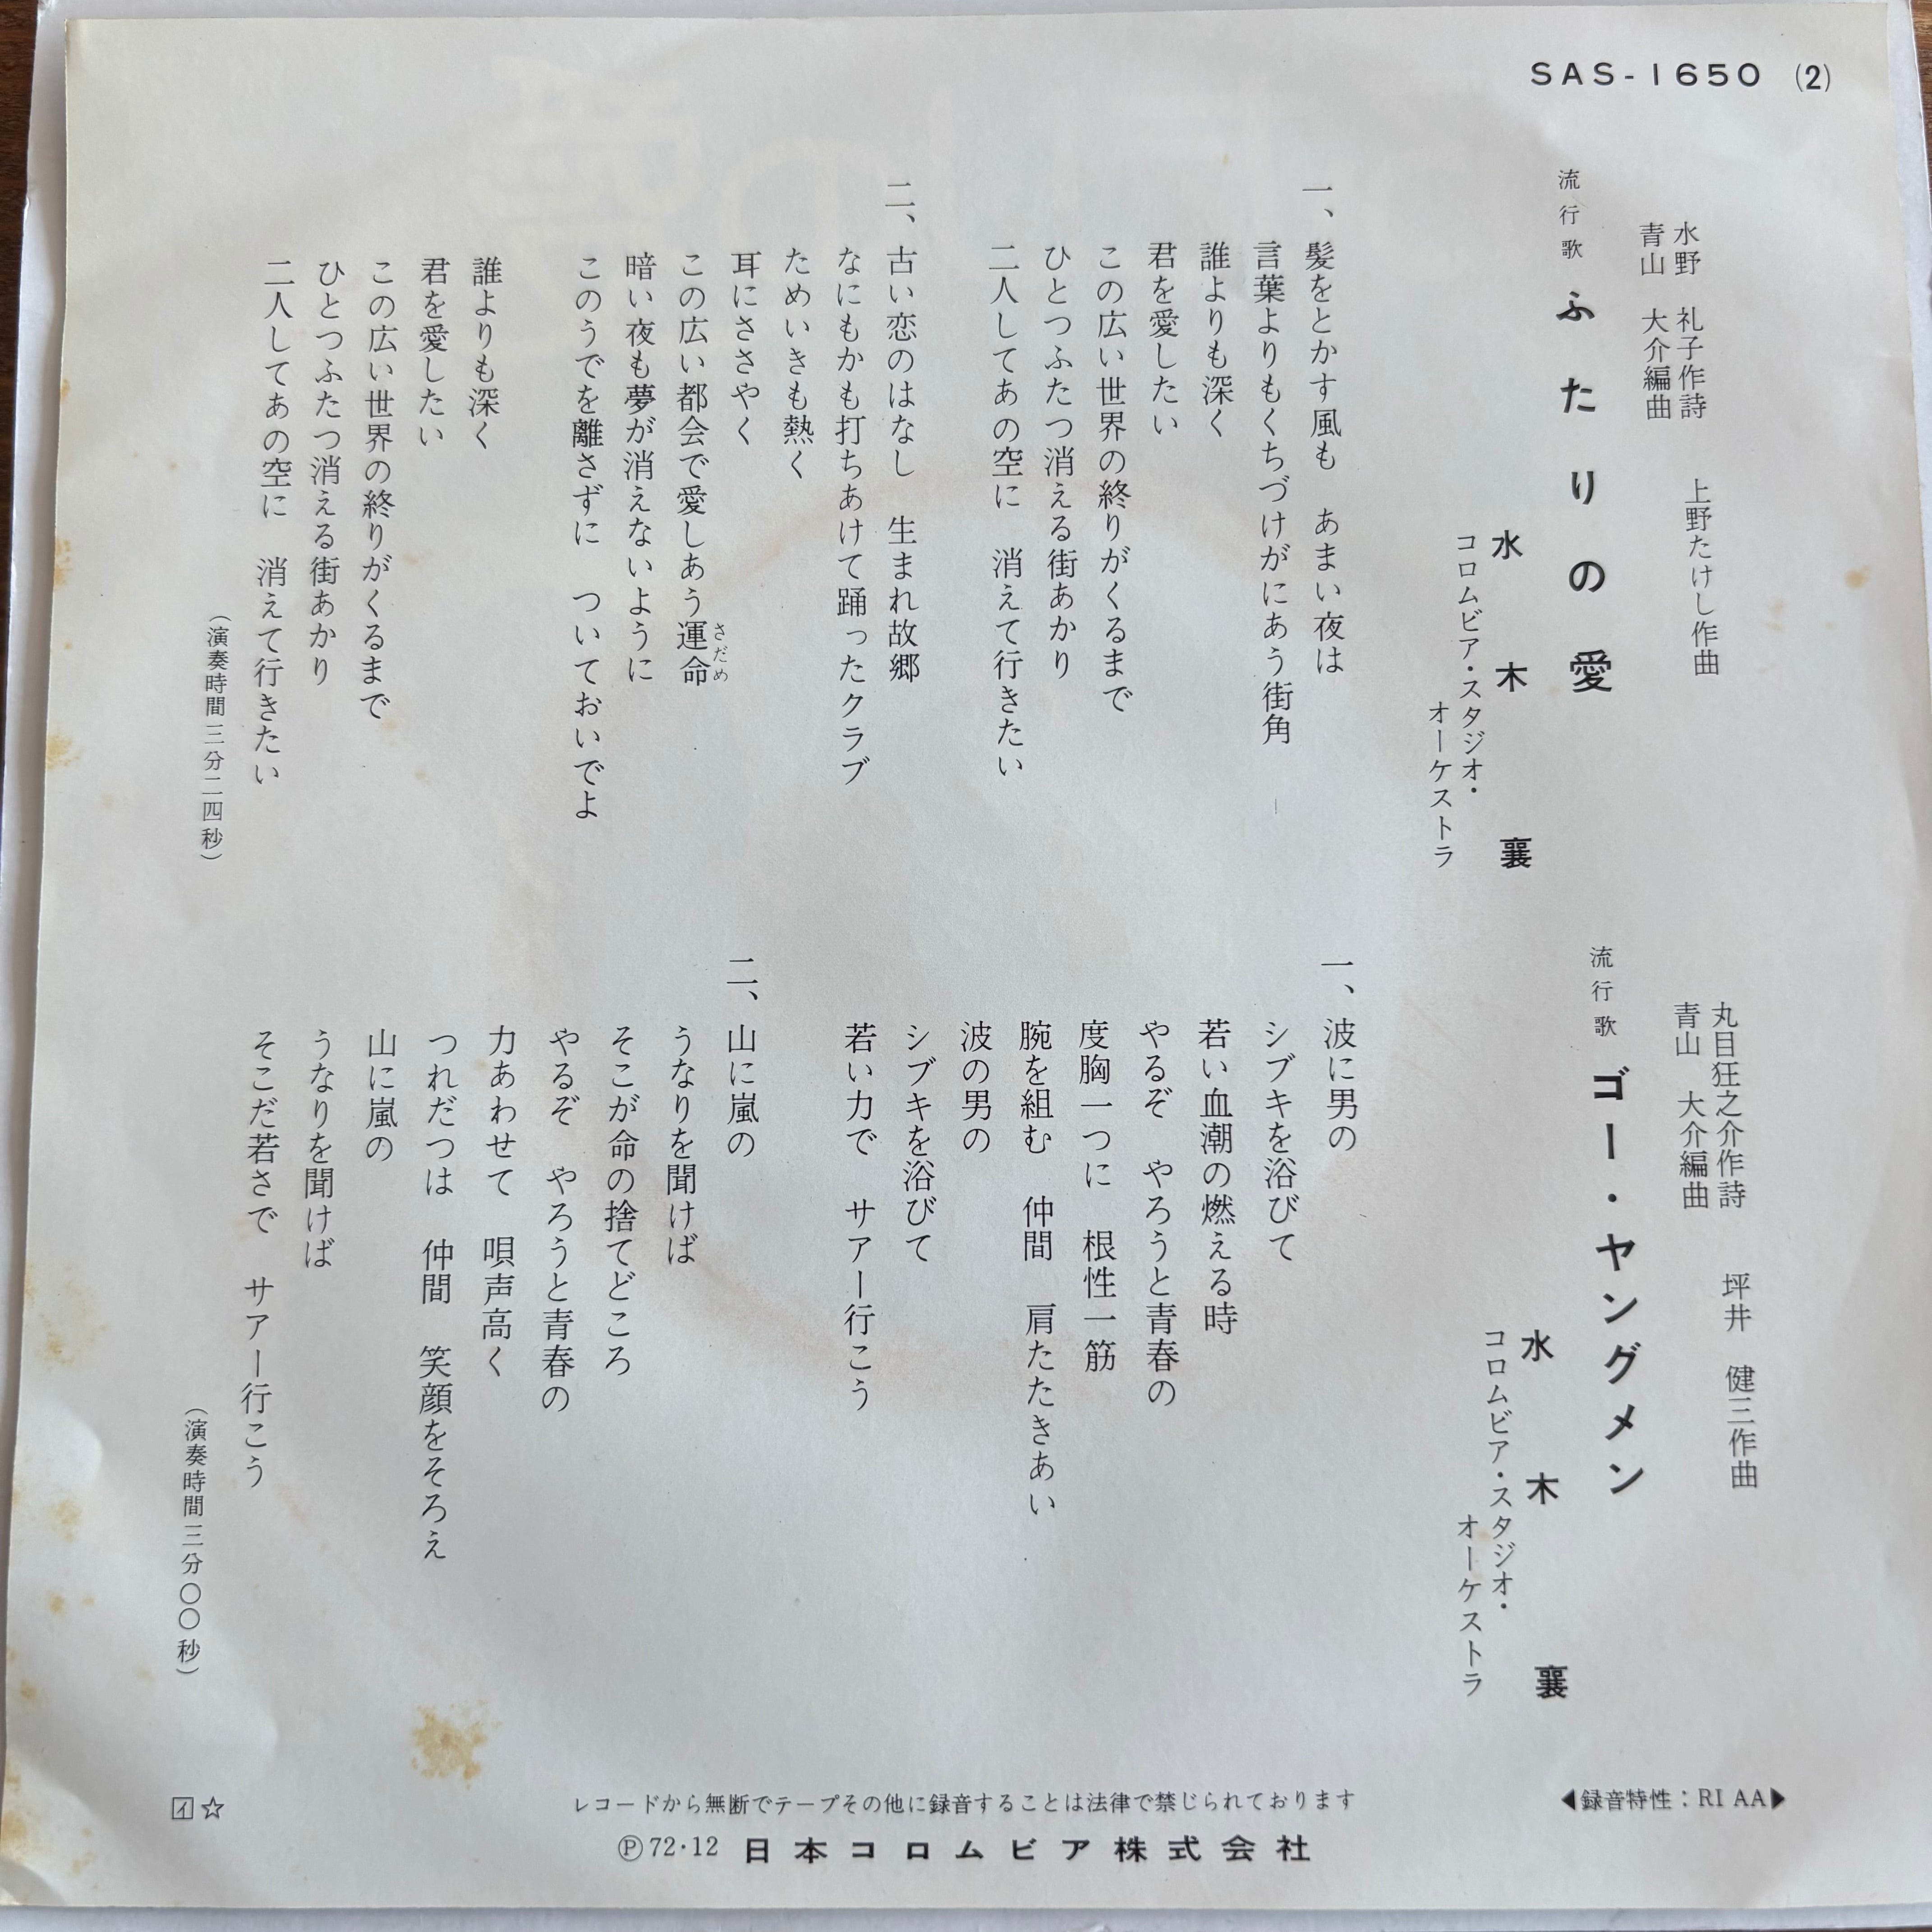 SAS-1650 (2)
水野 礼子作詩
上野たけし作曲
青山 大介編曲
流行歌 ふたりの愛
水木襄
コロムビア・スタジオ・
オーケストラ
一、髪をとかす風も あまい夜は
言葉よりもくちづけがにあう街角
誰よりも深く
君を愛したい
この広い世界の終りがくるまで
ひとつふたつ消える街あかり
二人してあの空に 消えて行きたい
二、古い恋のはなし 生まれ故郷
なにもかも打ちあけて踊ったクラブ
ためいきも熱く
耳にささやく
この広い都会で愛しあう運命
さだめ
暗い夜も夢が消えないように
このうでを離さずに ついておいでよ
誰よりも深く
君を愛したい
この広い世界の終りがくるまで
ひとつふたつ消える街あかり
二人してあの空に 消えて行きたい
(演奏時間三分二四秒)
丸目狂之介作詩
坪井 健三作曲
青山 大介編曲
流行歌 ゴー・ヤングメン
水木襄
コロムビア・スタジオ・
オーケストラ
一、波に男の
シブキを浴びて
若い血潮の燃える時
やるぞ やろうと青春の
度胸一つに 根性一筋
腕を組む 仲間 肩たたきあい
波の男の
シブキを浴びて
若い力で サアー行こう
二、山に嵐の
うなりを聞けば
そこが命の捨てどころ
やるぞ やろうと青春の
力あわせて 唄声高く
つれだつは 仲間 笑顔をそろえ
山に嵐の
うなりを聞けば
そこだ若さで サアー行こう
(演奏時間三分〇〇秒)
◀録音特性：RIAA▶
レコードから無断でテープその他に録音することは法律で禁じられております
Ⓟ72·12 日本コロムビア株式会社
イ☆